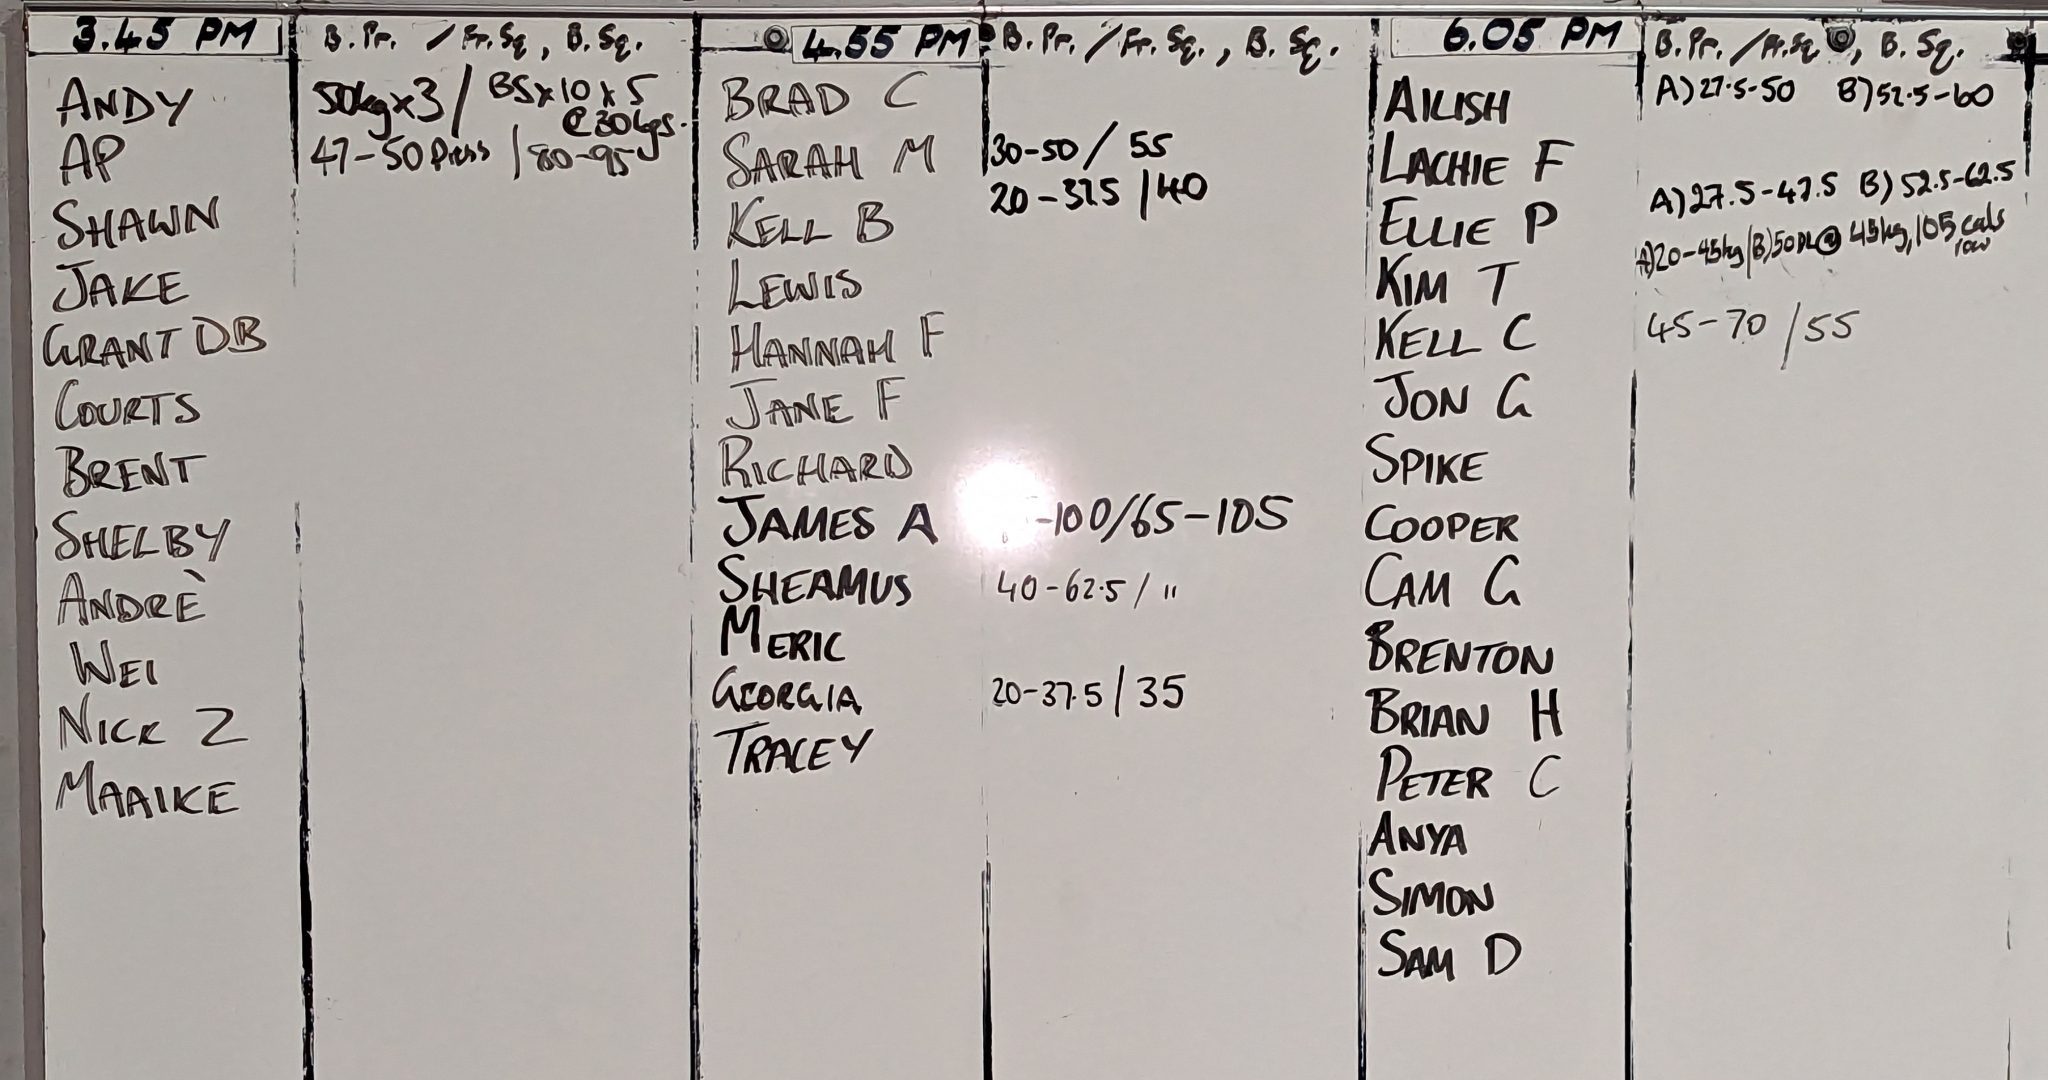 3.45 PM
B. Pr. / Fr. Sq, B. Sq.
ANDY 50kgx3 / BSx10x5
@30kgs.
AP 47-50 Press / 80-95
SHAWN
JAKE
GRANT DB
COURTS
BRENT
SHELBY
ANDRÈ
WEI
NICK Z
MAAIKE
4.55 PM
B. Pr. / Fr. Sq., B. Sq.
BRAD C
SARAH M 30-50 / 55
KELL B 20-37.5 / 40
LEWIS
HANNAH F
JANE F
RICHARD
JAMES A -100/65-105
SHEAMUS 40-62.5 / "
MERIC
GEORGIA 20-37.5 / 35
TRACEY
6.05 PM
B. Pr. / Fr. Sq, B. Sq.
AILISH A) 27.5-50 B) 52.5-60
LACHIE F
ELLIE P A) 27.5-47.5 B) 52.5-62.5
KIM T A) 20-45kg / B) 50 DL @ 45kg, 105 cals
row
KELL C 45-70 / 55
JON G
SPIKE
COOPER
CAM G
BRENTON
BRIAN H
PETER C
ANYA
SIMON
SAM D